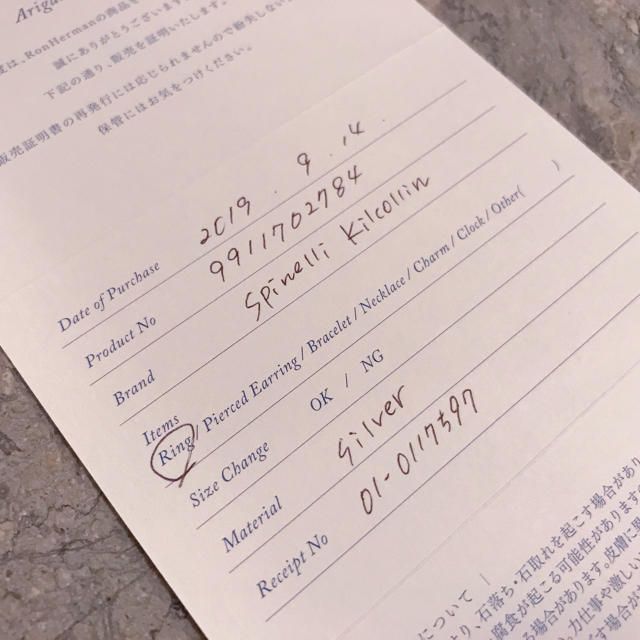 Ariga
度は、RonHermanの商品を
誠にありがとうございます
下記の通り、販売を証明いたします。
販売証明書の再発行には応じられませんので紛失しない
保管にはお気をつけください。
Date of Purchase 2019.9.14.
Product No 9911702784
Brand Spinelli Kilcollin
Items
Ring / Pierced Earring / Bracelet / Necklace / Charm / Clock / Other( )
Size Change OK / NG
Material Silver
Receipt No 01-0117597
について
り、石落ち・石取れを起こす場合があり
腐食が起こる可能性があります
る場合があります。皮膚に
力仕事や激しい